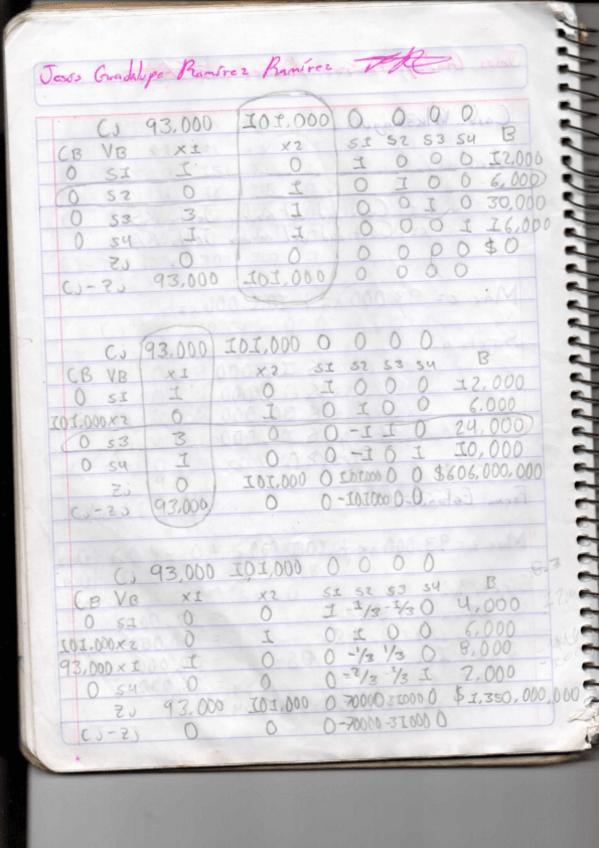 Jesús Guadalupe Ramírez Ramírez
CJ 93,000 101,000 0 0 0 0
CB VB X1 X2 S1 S2 S3 S4 B
0 S1 1 0 1 0 0 0 12,000
0 S2 0 1 0 1 0 0 6,000
0 S3 3 1 0 0 1 0 30,000
0 S4 1 1 0 0 0 1 16,000
ZJ 0 0 0 0 0 0 $0
CJ-ZJ 93,000 101,000 0 0 0 0
CJ 93,000 101,000 0 0 0 0
CB VB X1 X2 S1 S2 S3 S4 B
0 S1 1 0 1 0 0 0 12,000
101,000 X2 0 1 0 1 0 0 6,000
0 S3 3 0 0 -1 1 0 24,000
0 S4 1 0 0 -1 0 1 10,000
ZJ 0 101,000 0 101000 0 $606,000,000
CJ-ZJ 93,000 0 0 -101000 0 0
CJ 93,000 101,000 0 0 0 0
CB VB X1 X2 S1 S2 S3 S4 B
0 S1 0 0 1 -1/3 0 4,000
101,000 X2 0 1 0 1 0 0 6,000
93,000 X1 1 0 0 -1/3 1/3 0 8,000
0 S4 0 0 0 -2/3 -1/3 1 2,000
ZJ 93,000 101,000 0 70000 31000 0 $1,350,000,000
CJ-ZJ 0 0 0 -70000 -31000 0